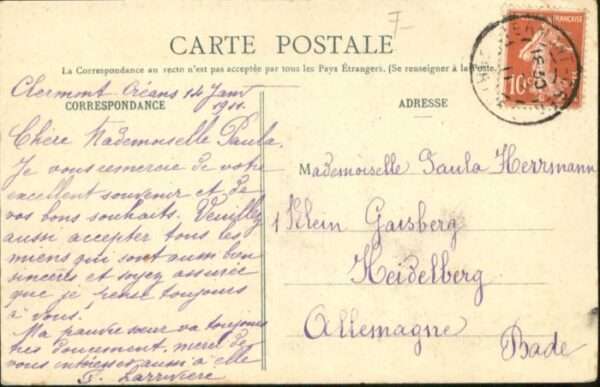 CARTE POSTALE
La Correspondance au recto n'est pas acceptée par tous les Pays Étrangers. (Se renseigner à la Poste.)
CORRESPONDANCE
ADRESSE
Clermont-Créans 14 Janv
1911.
Chère Mademoiselle Paula.
Je vous remercie de votre
excellent souvenir et de
vos bons souhaits. Veuillez
aussi accepter tous les
miens qui sont aussi bien
sincères et soyez assurée
que je pense toujours
à vous.
Ma pauvre sœur va toujours
très doucement, merci de
vous intéresser aussi à elle
Larrivière
Mademoiselle Paula Herrmann
1 Klein Gaisberg
Heidelberg
Allemagne
Bade
FRANÇAISE
10